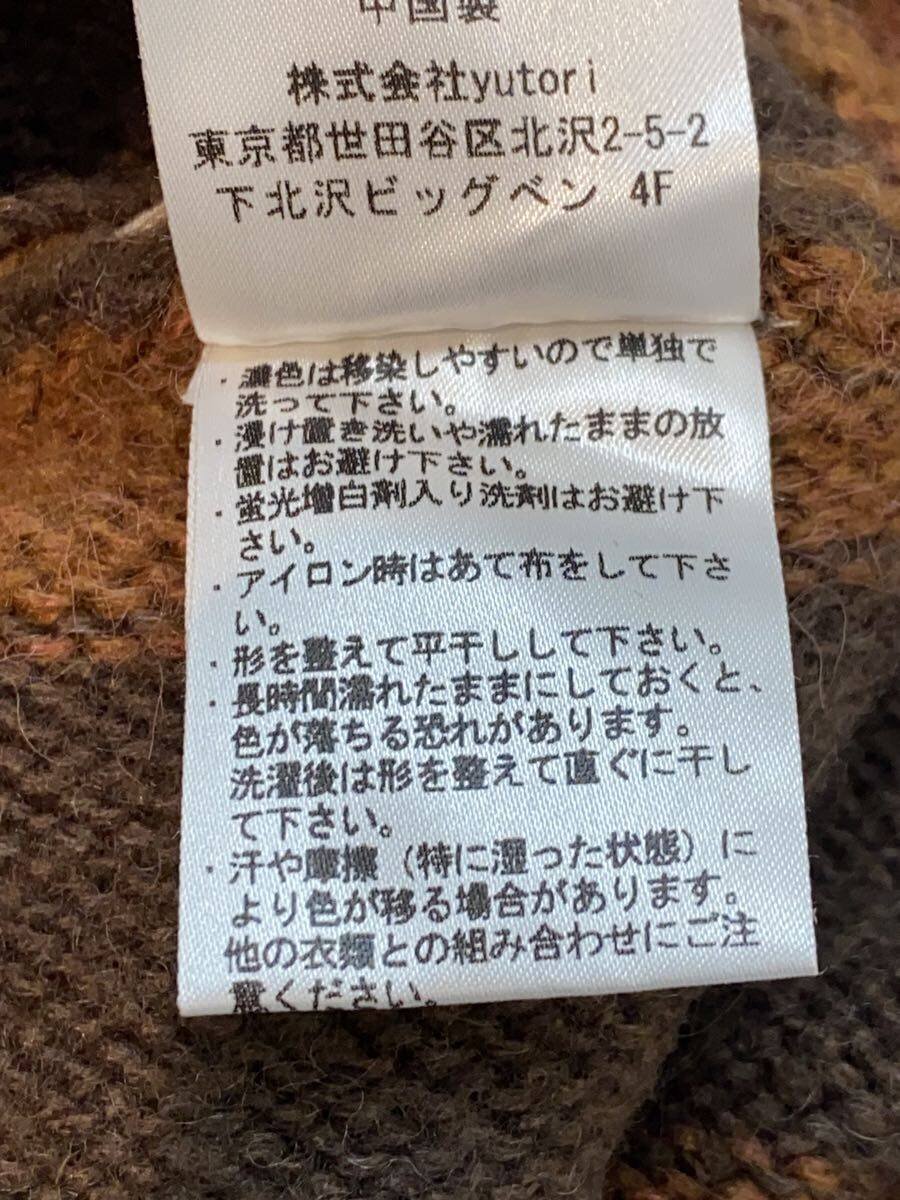 中国製
株式会社yutori
東京都世田谷区北沢2-5-2
下北沢ビッグベン 4F
・濃色は移染しやすいので単独で
洗って下さい。
・浸け置き洗いや濡れたままの放
置はお避け下さい。
・蛍光増白剤入り洗剤はお避け下
さい。
・アイロン時はあて布をして下さ
い。
・形を整えて平干しして下さい。
・長時間濡れたままにしておくと、
色が落ちる恐れがあります。
洗濯後は形を整えて直ぐに干し
て下さい。
・汗や摩擦（特に湿った状態）に
より色が移る場合があります。
他の衣類との組み合わせにご注
意ください。